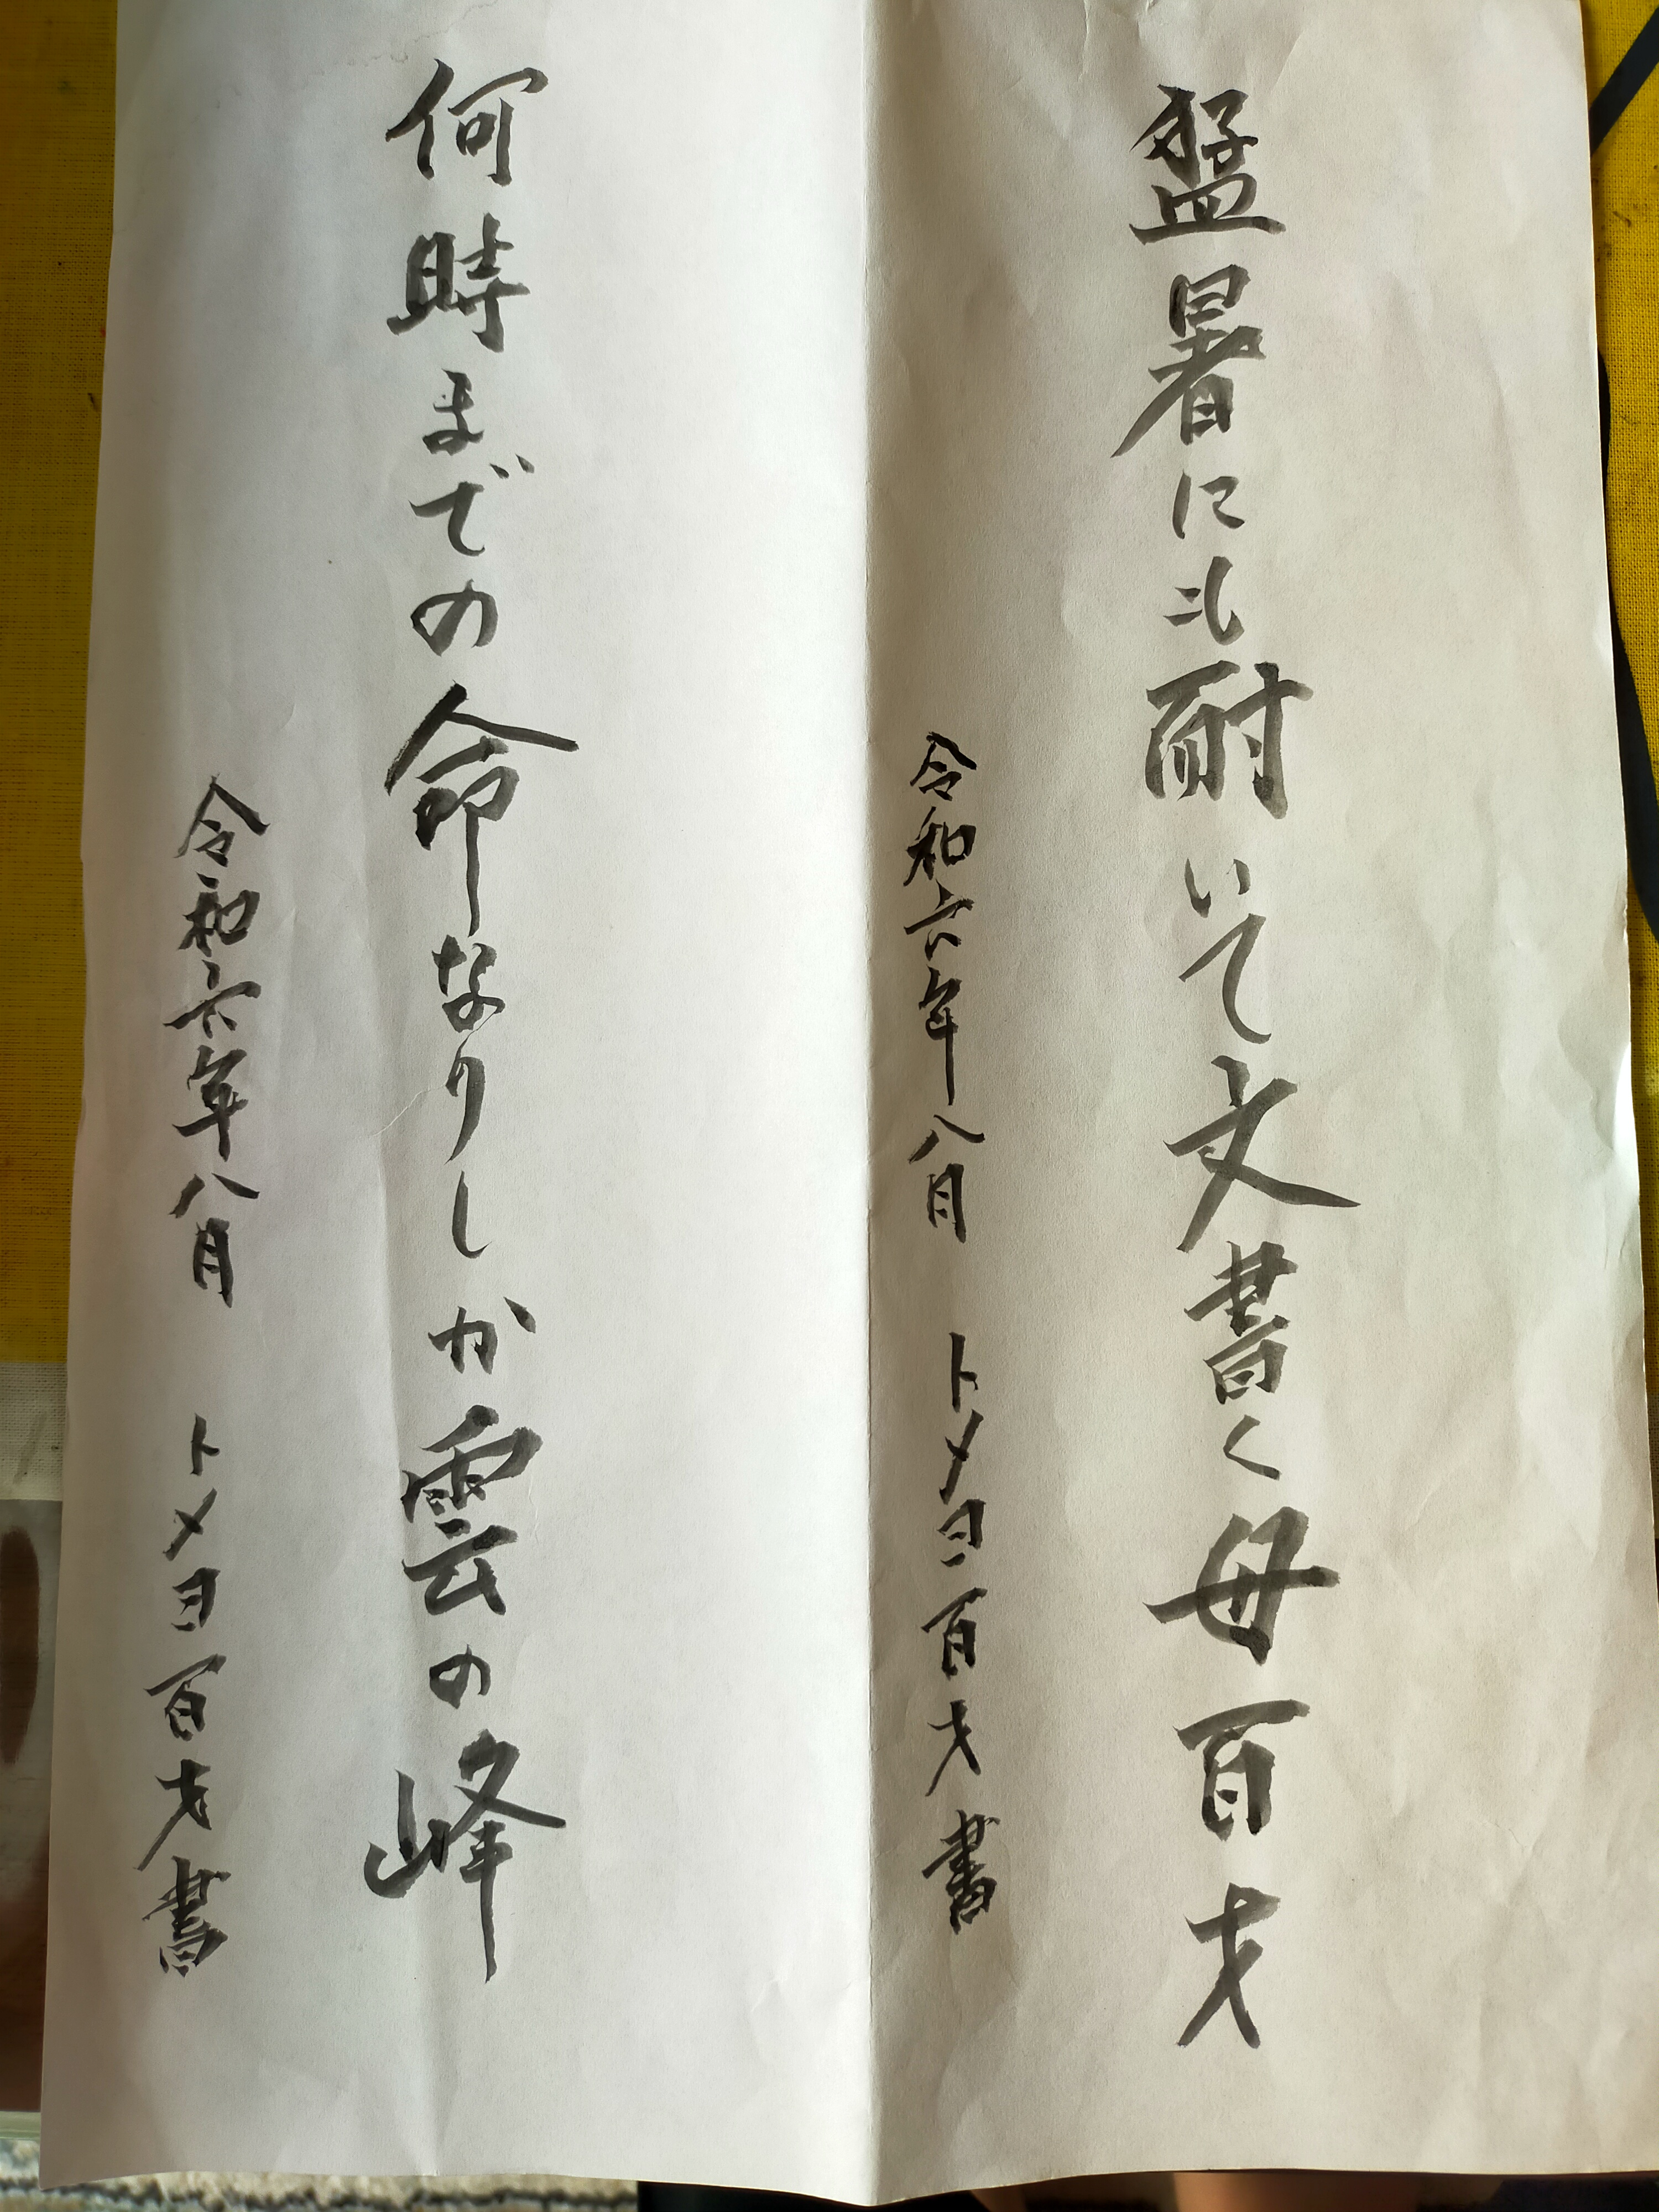 猛暑にも耐いて文書く母百才
令和六年八月 トメヨ百才書
何時までの命なりしか雲の峰
令和六年八月 トメヨ百才書